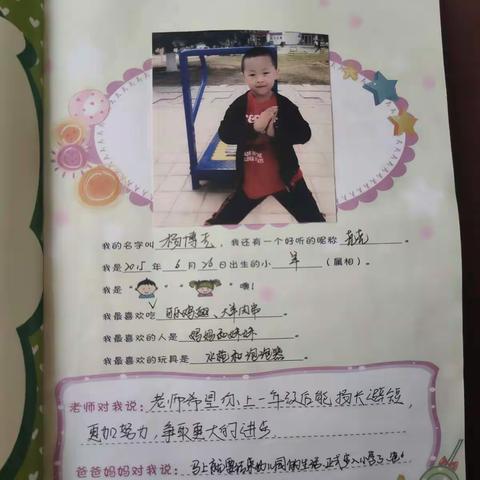 我的名字叫 杨博尧，我还有一个好听的昵称 尧尧。
我是2015年6月26日出生的小 羊（属相）。
我是 噢!
我最喜欢吃 、大羊肉串
我最喜欢的人是 妈妈和妹妹
我最喜欢的玩具是 水苑和泡泡器
老师对我说：老师希望你上一年级后能扬长避短，
更加努力，争取更大的进步。
爸爸妈妈对我说：马上就要结束幼儿园的生活，正式步入小学了